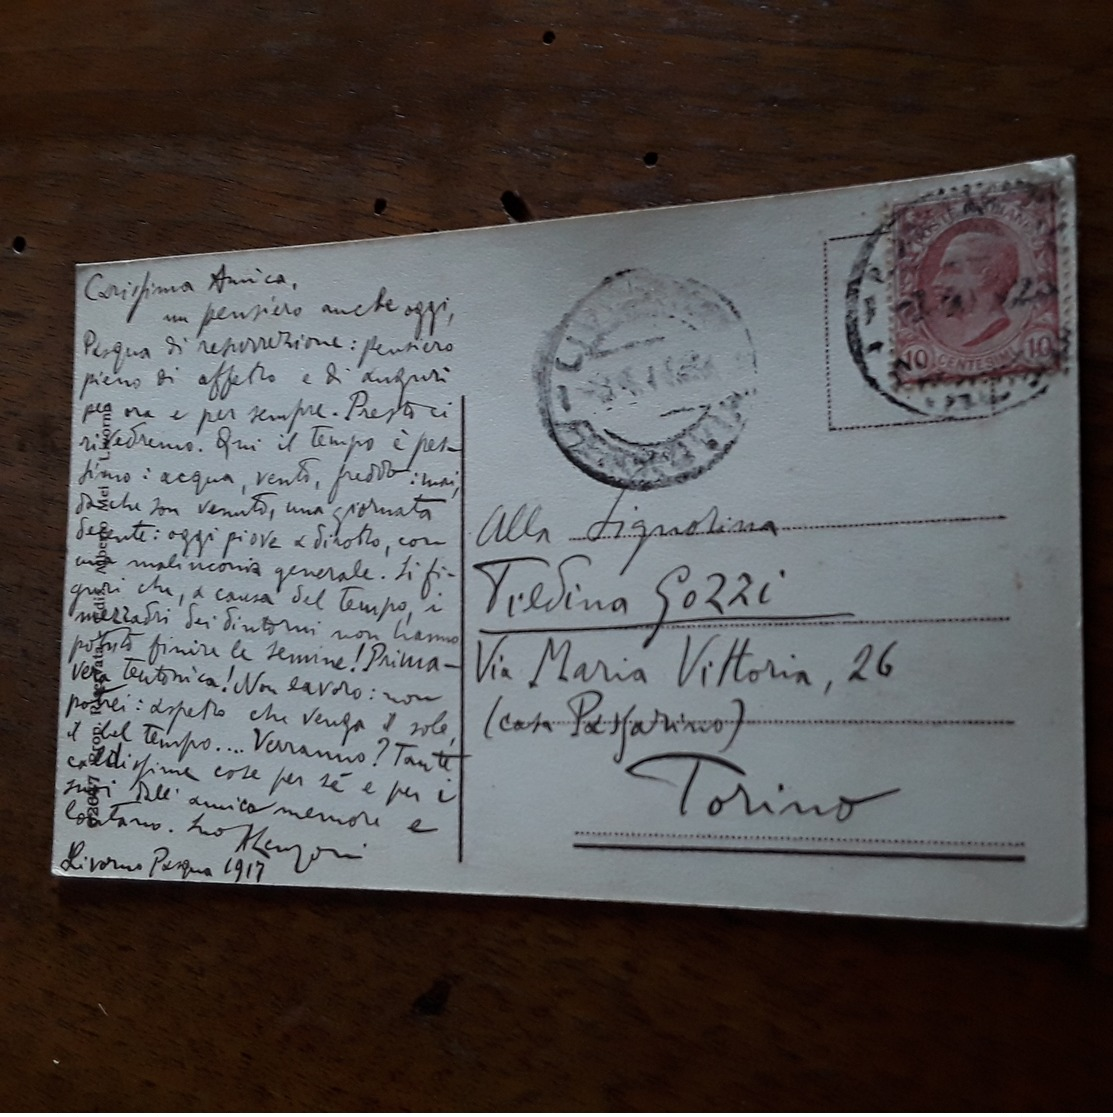 Carissima Amica,
un pensiero anche oggi,
Pasqua di resurrezione: pensiero
pieno di affetto e di auguri
per ora e per sempre. Presto ci
rivedremo. Qui il tempo è pes-
simo: acqua, vento, freddo: mai,
dacche son venuto, una giornata
decente: oggi piove a dirotto, con
una malinconia generale. Si fi-
guri che, a causa del tempo, i
mezzadri dei dintorni non hanno
potuto finire le semine! Prima-
vera teutonica! Non lavoro: non
potrei: aspetto che venga il sole,
il bel tempo.... Verranno? Tante
caldissime cose per sé e per i
suoi dall' amico memore e
lontano. Suo
Livorno Pasqua 1917
Prop. Riservata Ediz. Alberto Livorno
10 CENTESIMI 10
Alla Signorina
Tildina Gozzi
Via Maria Vittoria, 26
(casa Passarino)
Torino